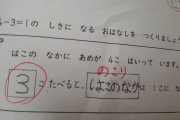 -3=1の しきに なる おはなしを つくりましょう
はこの なかに あめが 4こ はいって います。
のこり
3 こ たべると、はこのなか は 1こ に な